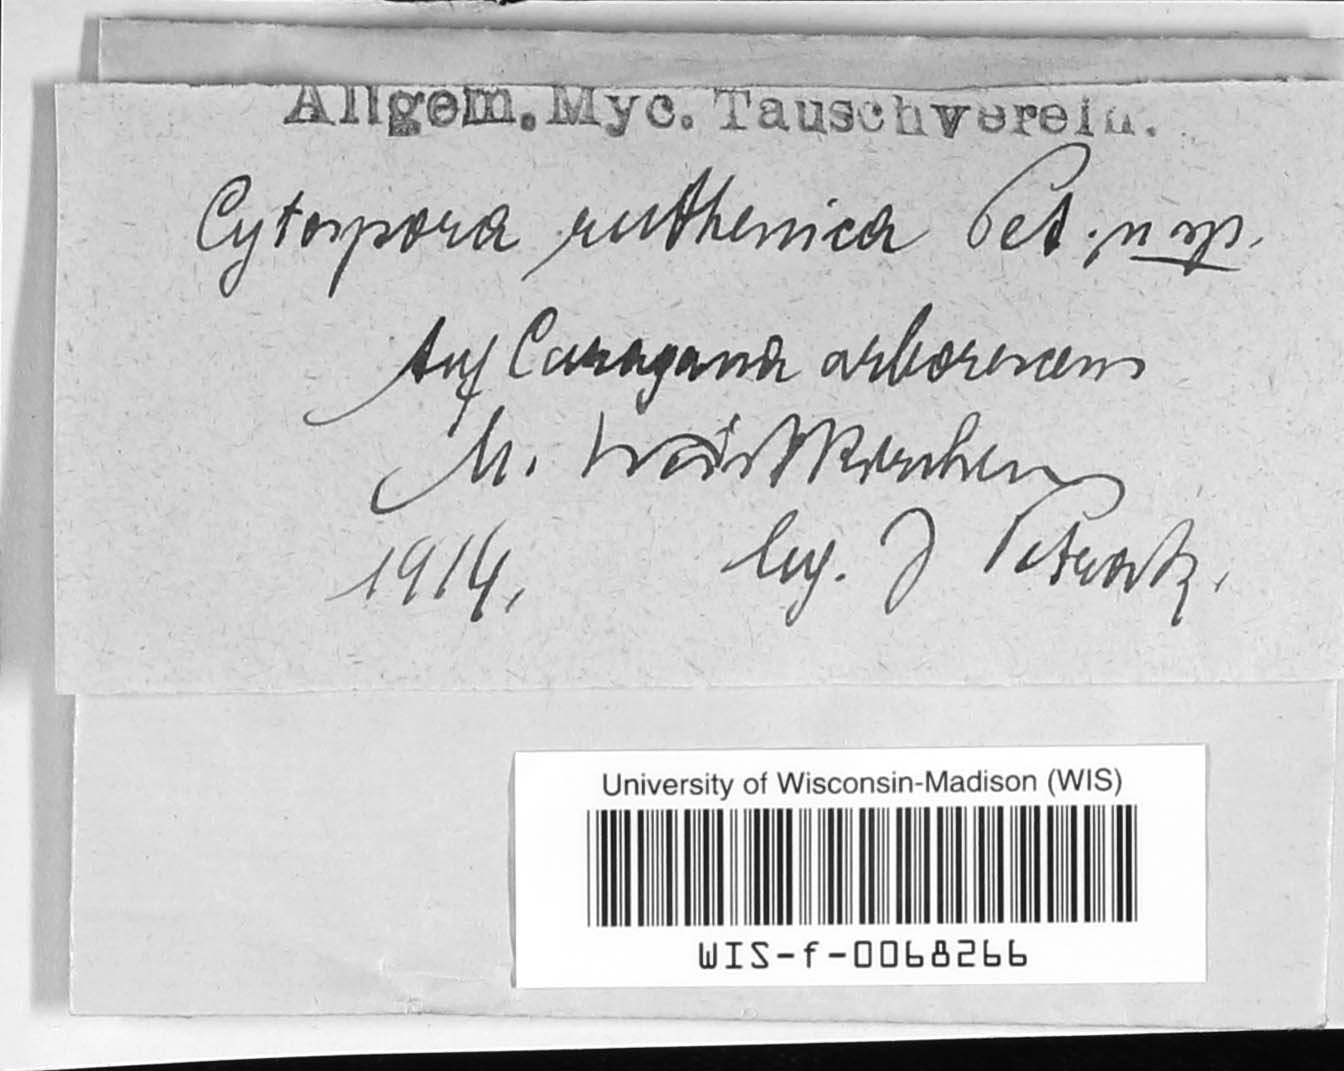 Allgem. Myc. Tauschverein.
Cytospora ruthenica Pet. n sp.
Auf Caragana arborescens
M. Weisskirchen
1914, leg. J Petrak,
University of Wisconsin-Madison (WIS)
WIS-f-0068266